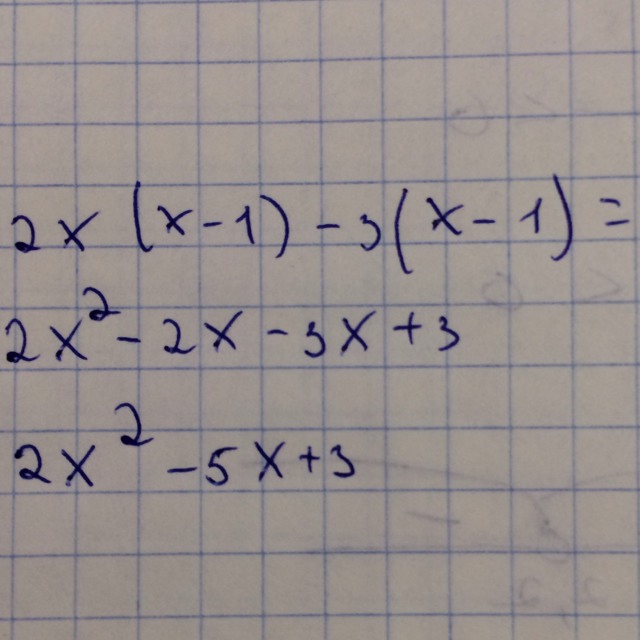 2x (x-1) - 3(x - 1) =
2x² - 2x - 3x + 3
2x² - 5x + 3